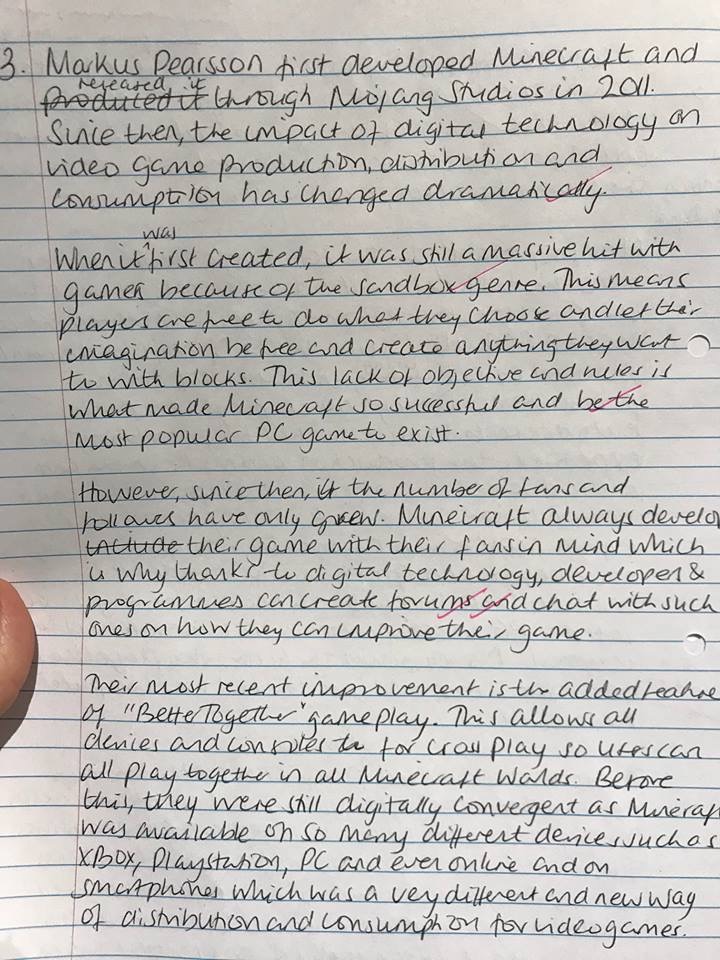 3. Markus Pearsson first developed Minecraft and
released it
produced it through Mojang Studios in 2011.
Since then, the impact of digital technology on
video game production, distribution and
consumption has changed dramatically.
was
When it first created, it was still a massive hit with
gamers because of the sandbox genre. This means
players are free to do what they choose and let their
imagination be free and create anything they want
to with blocks. This lack of objective and rules is
what made Minecraft so successful and be the
most popular PC game to exist.
However, since then, the number of fans and
followers have only grown. Minecraft always develop
include their game with their fans in mind which
is why thanks to digital technology, developers &
programmes can create forums and chat with such
ones on how they can improve their game.
Their most recent improvement is the added feature
of "Better Together" gameplay. This allows all
devices and consoles to for cross play so users can
all play together in all Minecraft Worlds. Before
this, they were still digitally convergent as Minecraft
was available on so many different devices such as
XBOX, Playstation, PC and even online and on
smartphones which was a very different and new way
of distribution and consumption for videogames.